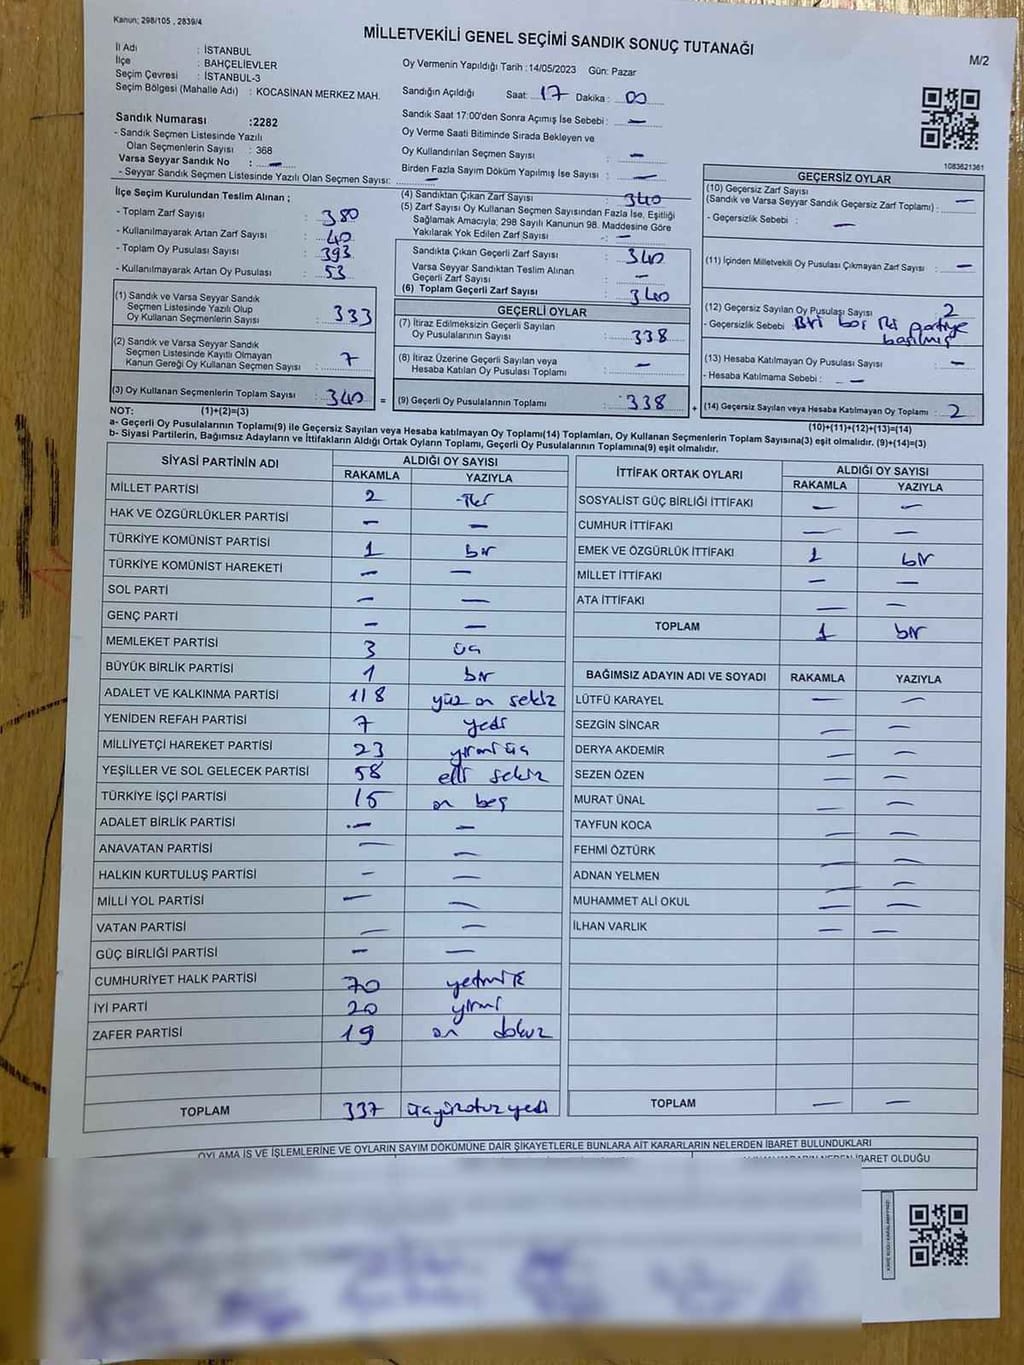 Kanun; 298/105 , 2839/4
MİLLETVEKİLİ GENEL SEÇİMİ SANDIK SONUÇ TUTANAĞI
M/2
İl Adı : İSTANBUL
İlçe : BAHÇELİEVLER
Seçim Çevresi : İSTANBUL-3
Seçim Bölgesi (Mahalle Adı) : KOCASİNAN MERKEZ MAH.
Sandık Numarası :2282
- Sandık Seçmen Listesinde Yazılı
Olan Seçmenlerin Sayısı : 368
Varsa Seyyar Sandık No : —
- Seyyar Sandık Seçmen Listesinde Yazılı Olan Seçmen Sayısı: —
Oy Vermenin Yapıldığı Tarih :14/05/2023 Gün: Pazar
Sandığın Açıldığı Saat: 17 Dakika : 00
Sandık Saat 17:00'den Sonra Açımış İse Sebebi : —
Oy Verme Saati Bitiminde Sırada Bekleyen ve
Oy Kullandırılan Seçmen Sayısı : —
Birden Fazla Sayım Döküm Yapılmış İse Sayısı : —
1083621361
İlçe Seçim Kurulundan Teslim Alınan ;
- Toplam Zarf Sayısı : 380
- Kullanılmayarak Artan Zarf Sayısı : 40
- Toplam Oy Pusulası Sayısı : 393
- Kullanılmayarak Artan Oy Pusulası : 53
(1) Sandık ve Varsa Seyyar Sandık
Seçmen Listesinde Yazılı Olup
Oy Kullanan Seçmenlerin Sayısı : 333
(2) Sandık ve Varsa Seyyar Sandık
Seçmen Listesinde Kayıtlı Olmayan
Kanun Gereği Oy Kullanan Seçmen Sayısı : 7
(3) Oy Kullanan Seçmenlerin Toplam Sayısı : 340 =
(4) Sandıktan Çıkan Zarf Sayısı : 340
(5) Zarf Sayısı Oy Kullanan Seçmen Sayısından Fazla İse, Eşitliği
Sağlamak Amacıyla; 298 Sayılı Kanunun 98. Maddesine Göre
Yakılarak Yok Edilen Zarf Sayısı : —
Sandıkta Çıkan Geçerli Zarf Sayısı : 340
Varsa Seyyar Sandıktan Teslim Alınan
Geçerli Zarf Sayısı : —
(6) Toplam Geçerli Zarf Sayısı : 340
GEÇERLİ OYLAR
(7) İtiraz Edilmeksizin Geçerli Sayılan
Oy Pusulalarının Sayısı : 338
(8) İtiraz Üzerine Geçerli Sayılan veya
Hesaba Katılan Oy Pusulası Toplamı : —
(9) Geçerli Oy Pusulalarının Toplamı : 338 +
GEÇERSİZ OYLAR
(10) Geçersiz Zarf Sayısı
(Sandık ve Varsa Seyyar Sandık Geçersiz Zarf Toplamı) : —
- Geçersizlik Sebebi : —
(11) İçinden Milletvekili Oy Pusulası Çıkmayan Zarf Sayısı : —
(12) Geçersiz Sayılan Oy Pusulası Sayısı : 2
- Geçersizlik Sebebi : Biri boş iki partiye
basılmış
(13) Hesaba Katılmayan Oy Pusulası Sayısı : —
- Hesaba Katılmama Sebebi : —
(14) Geçersiz Sayılan veya Hesaba Katılmayan Oy Toplamı : 2
NOT: (1)+(2)=(3) (10)+(11)+(12)+(13)=(14)
a- Geçerli Oy Pusulalarının Toplamı(9) ile Geçersiz Sayılan veya Hesaba katılmayan Oy Toplamı(14) Toplamları, Oy Kullanan Seçmenlerin Toplam Sayısına(3) eşit olmalıdır. (9)+(14)=(3)
b- Siyasi Partilerin, Bağımsız Adayların ve İttifakların Aldığı Ortak Oyların Toplamı, Geçerli Oy Pusulalarının Toplamına(9) eşit olmalıdır.
SİYASİ PARTİNİN ADI ALDIĞI OY SAYISI
RAKAMLA YAZIYLA
MİLLET PARTİSİ 2 iki
HAK VE ÖZGÜRLÜKLER PARTİSİ — —
TÜRKİYE KOMÜNİST PARTİSİ 1 bir
TÜRKİYE KOMÜNİST HAREKETİ — —
SOL PARTİ — —
GENÇ PARTİ — —
MEMLEKET PARTİSİ 3 üç
BÜYÜK BİRLİK PARTİSİ 1 bir
ADALET VE KALKINMA PARTİSİ 118 yüz on sekiz
YENİDEN REFAH PARTİSİ 7 yedi
MİLLİYETÇİ HAREKET PARTİSİ 23 yirmi üç
YEŞİLLER VE SOL GELECEK PARTİSİ 58 elli sekiz
TÜRKİYE İŞÇİ PARTİSİ 15 on beş
ADALET BİRLİK PARTİSİ — —
ANAVATAN PARTİSİ — —
HALKIN KURTULUŞ PARTİSİ — —
MİLLİ YOL PARTİSİ — —
VATAN PARTİSİ — —
GÜÇ BİRLİĞİ PARTİSİ — —
CUMHURİYET HALK PARTİSİ 70
İYİ PARTİ 20 yirmi
ZAFER PARTİSİ 19 on dokuz
TOPLAM 337 üçyüzotuzyedi
İTTİFAK ORTAK OYLARI ALDIĞI OY SAYISI
RAKAMLA YAZIYLA
SOSYALİST GÜÇ BİRLİĞİ İTTİFAKI — —
CUMHUR İTTİFAKI — —
EMEK VE ÖZGÜRLÜK İTTİFAKI 1 bir
MİLLET İTTİFAKI — —
ATA İTTİFAKI — —
TOPLAM 1 bir
BAĞIMSIZ ADAYIN ADI VE SOYADI RAKAMLA YAZIYLA
LÜTFÜ KARAYEL — —
SEZGİN SİNCAR — —
DERYA AKDEMİR — —
SEZEN ÖZEN — —
MURAT ÜNAL — —
TAYFUN KOCA — —
FEHMİ ÖZTÜRK — —
ADNAN YELMEN — —
MUHAMMET ALİ OKUL — —
İLHAN VARLIK — —
TOPLAM — —
OYLAMA İŞ VE İŞLEMLERİNE VE OYLARIN SAYIM DÖKÜMÜNE DAİR ŞİKAYETLERLE BUNLARA AİT KARARLARIN NELERDEN İBARET BULUNDUKLARI
İBARET OLDUĞU